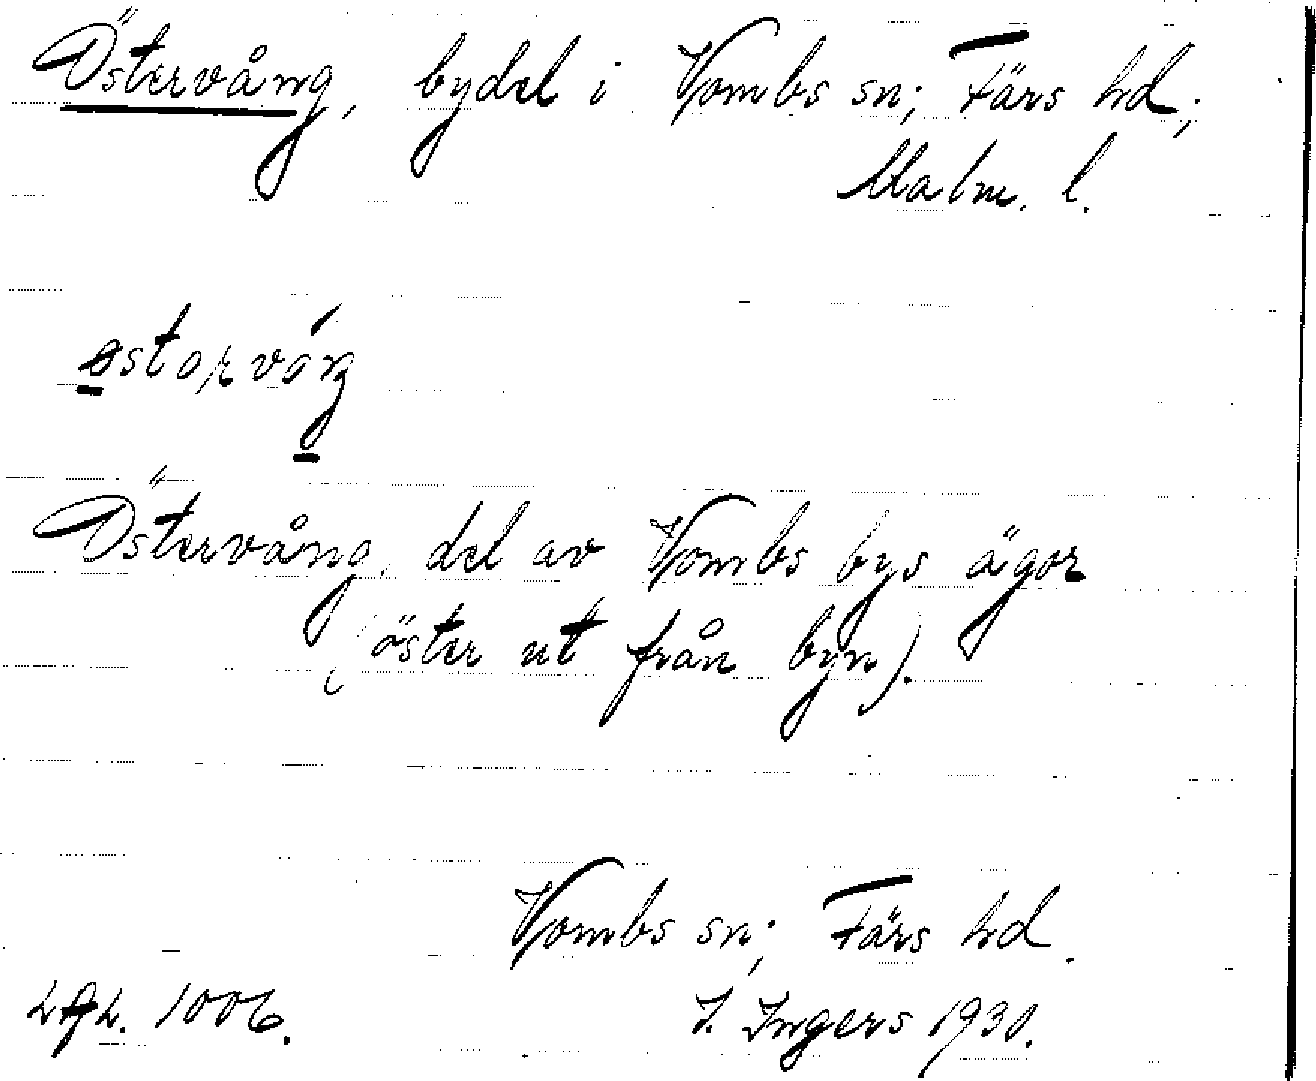 Östervång, bydel i Vombs sn; Färs hd;
Malm. l.
Östervång, del av Vombs bys ägor
(öster ut från byn).
Vombs sn; Färs hd.
1006.
I. Ingers 1930.